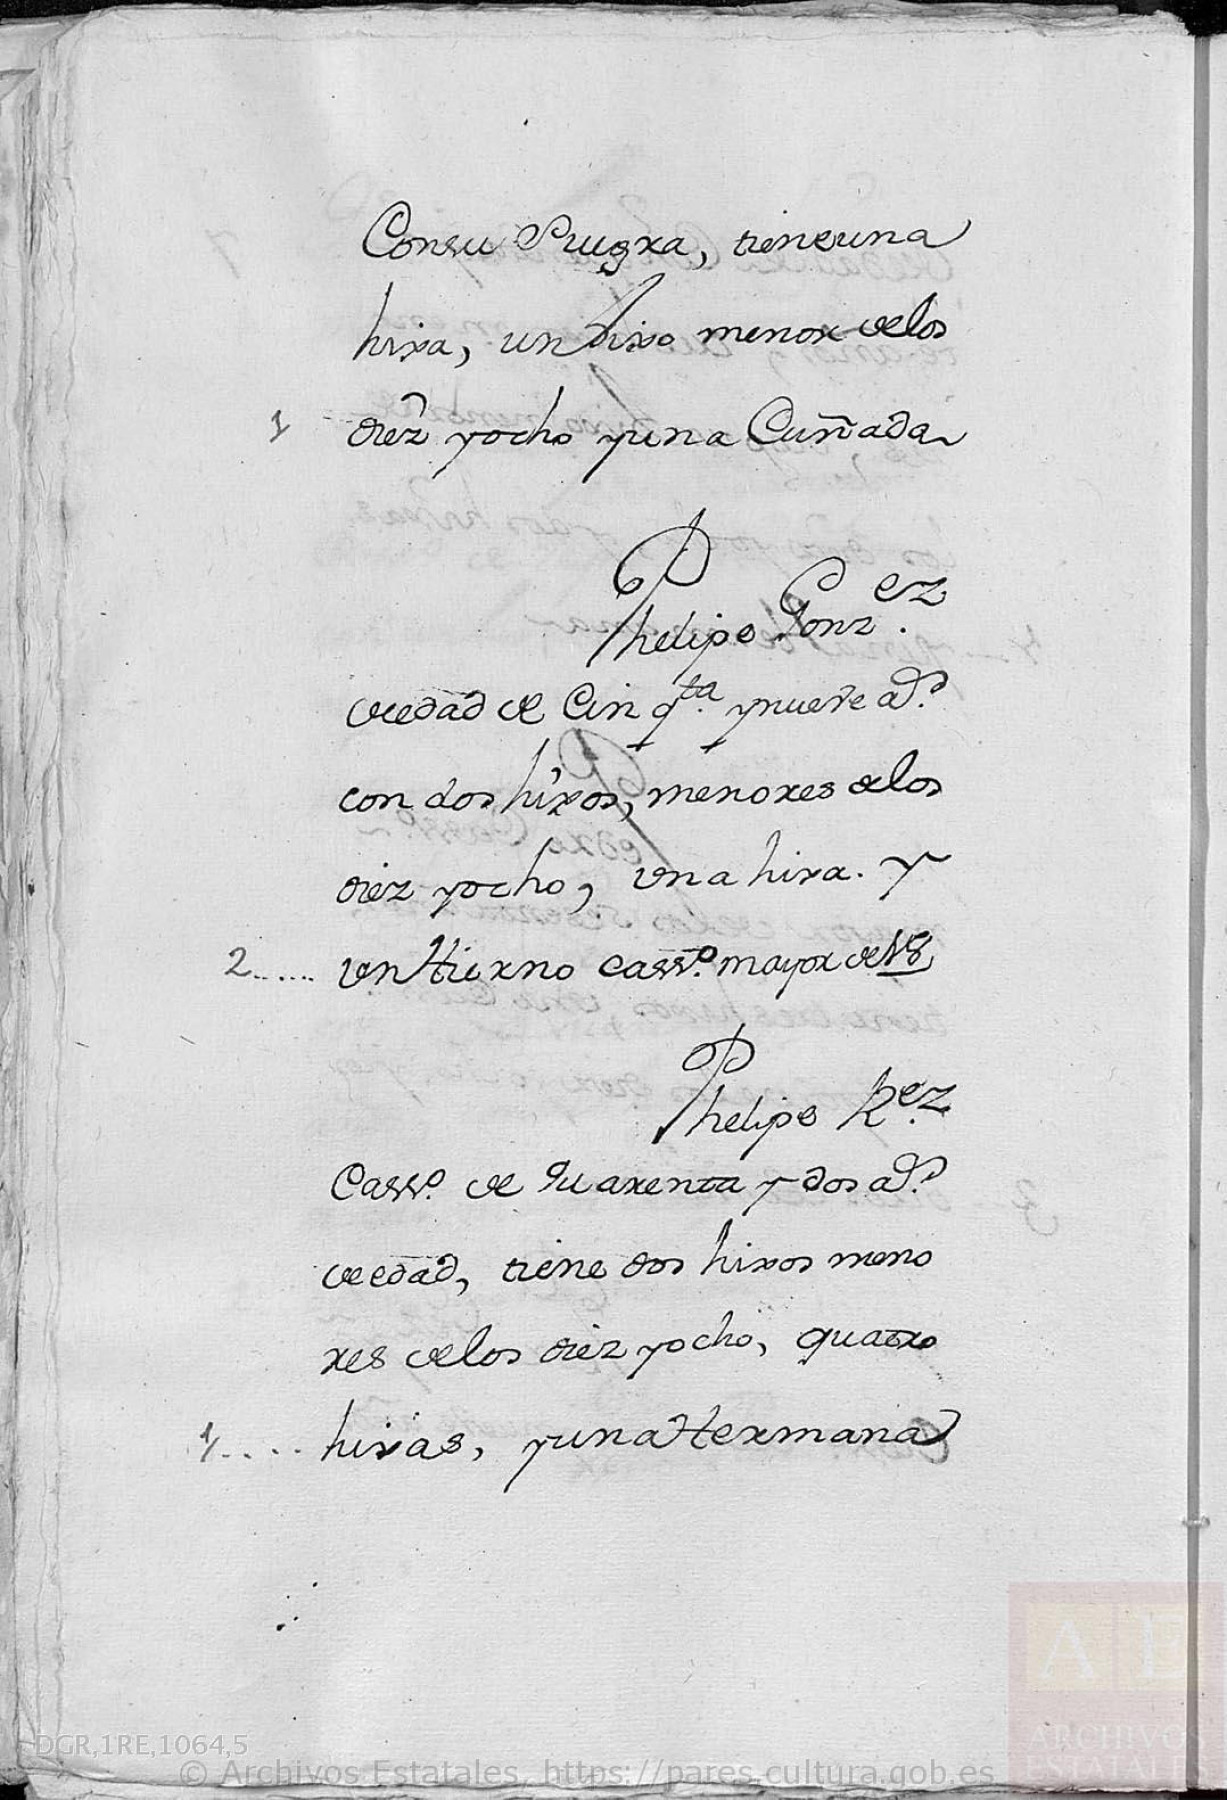 Consu Suegra, tieneuna
hixa, un hixo menor delos
1 diez yocho yuna Cuñada
Phelipe Gonz.ez
deedad de Cinq.ta ynueve a.s
con dos hixos, menores delos
diez yocho, una hixa. Y
2...... un Hierno cass.do mayor de 18
Phelipe R.ez
Cass.do de quarenta y dos a.s
deedad, tiene dos hixos meno
res delos diez yocho, quatro
1..... hixas, yuna Hermana
DGR,1RE,1064,5
© Archivos Estatales, https://pares.cultura.gob.es
AE
ARCHIVOS
ESTATALES